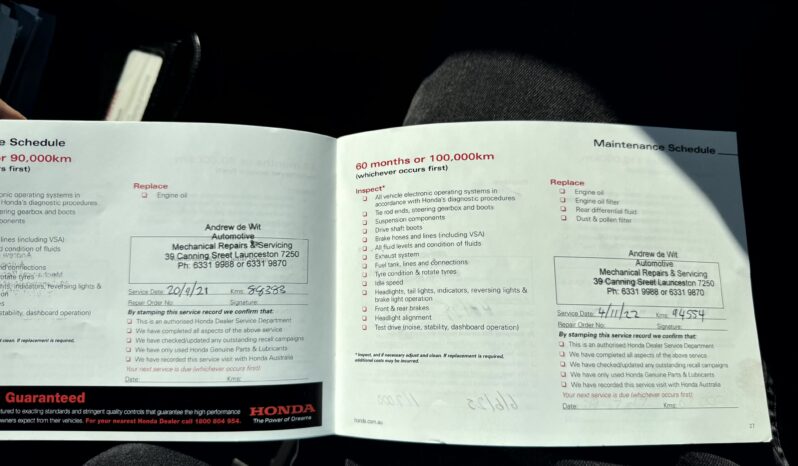 e Schedule
or 90,000km
s first)
onic operating systems in
Honda's diagnostic procedures
eering gearbox and boots
ponents
lines (including VSA)
d condition of fluids
nd connections
otate tyres
hts, indicators, reversing lights &
on
es
stability, dashboard operation)
clean. If replacement is required,
Replace
Engine oil
Andrew de Wit
Automotive
Mechanical Repairs & Servicing
39 Canning Sreet Launceston 7250
Ph: 6331 9988 or 6331 9870
Service Date: 20/9/21 Kms:
Repair Order No: Signature:
By stamping this service record we confirm that:
This is an authorised Honda Dealer Service Department
We have completed all aspects of the above service
We have checked/updated any outstanding recall campaigns
We have only used Honda Genuine Parts & Lubricants
We have recorded this service visit with Honda Australia
Your next service is due (whichever occurs first):
Date: Kms:
Guaranteed
tured to exacting standards and stringent quality controls that guarantee the high performance
owners expect from their vehicles. For your nearest Honda Dealer call 1800 804 954.
HONDA
The Power of Dreams
Maintenance Schedule
60 months or 100,000km
(whichever occurs first)
Inspect*
All vehicle electronic operating systems in
accordance with Honda's diagnostic procedures
Tie rod ends, steering gearbox and boots
Suspension components
Drive shaft boots
Brake hoses and lines (including VSA)
All fluid levels and condition of fluids
Exhaust system
Fuel tank, lines and connections
Tyre condition & rotate tyres
Idle speed
Headlights, tail lights, indicators, reversing lights &
brake light operation
Front & rear brakes
Headlight alignment
Test drive (noise, stability, dashboard operation)
* Inspect, and if necessary adjust and clean. If replacement is required,
additional costs may be incurred.
honda.com.au
Replace
Engine oil
Engine oil filter
Rear differential fluid
Dust & pollen filter
Andrew de Wit
Automotive
Mechanical Repairs & Servicing
39 Canning Sreet Launceston 7250
Ph: 6331 9988 or 6331 9870
Service Date: 4/11/22 Kms: 94554
Repair Order No: Signature:
By stamping this service record we confirm that:
This is an authorised Honda Dealer Service Department
We have completed all aspects of the above service
We have checked/updated any outstanding recall campaigns
We have only used Honda Genuine Parts & Lubricants
We have recorded this service visit with Honda Australia
Your next service is due (whichever occurs first):
Date: Kms: